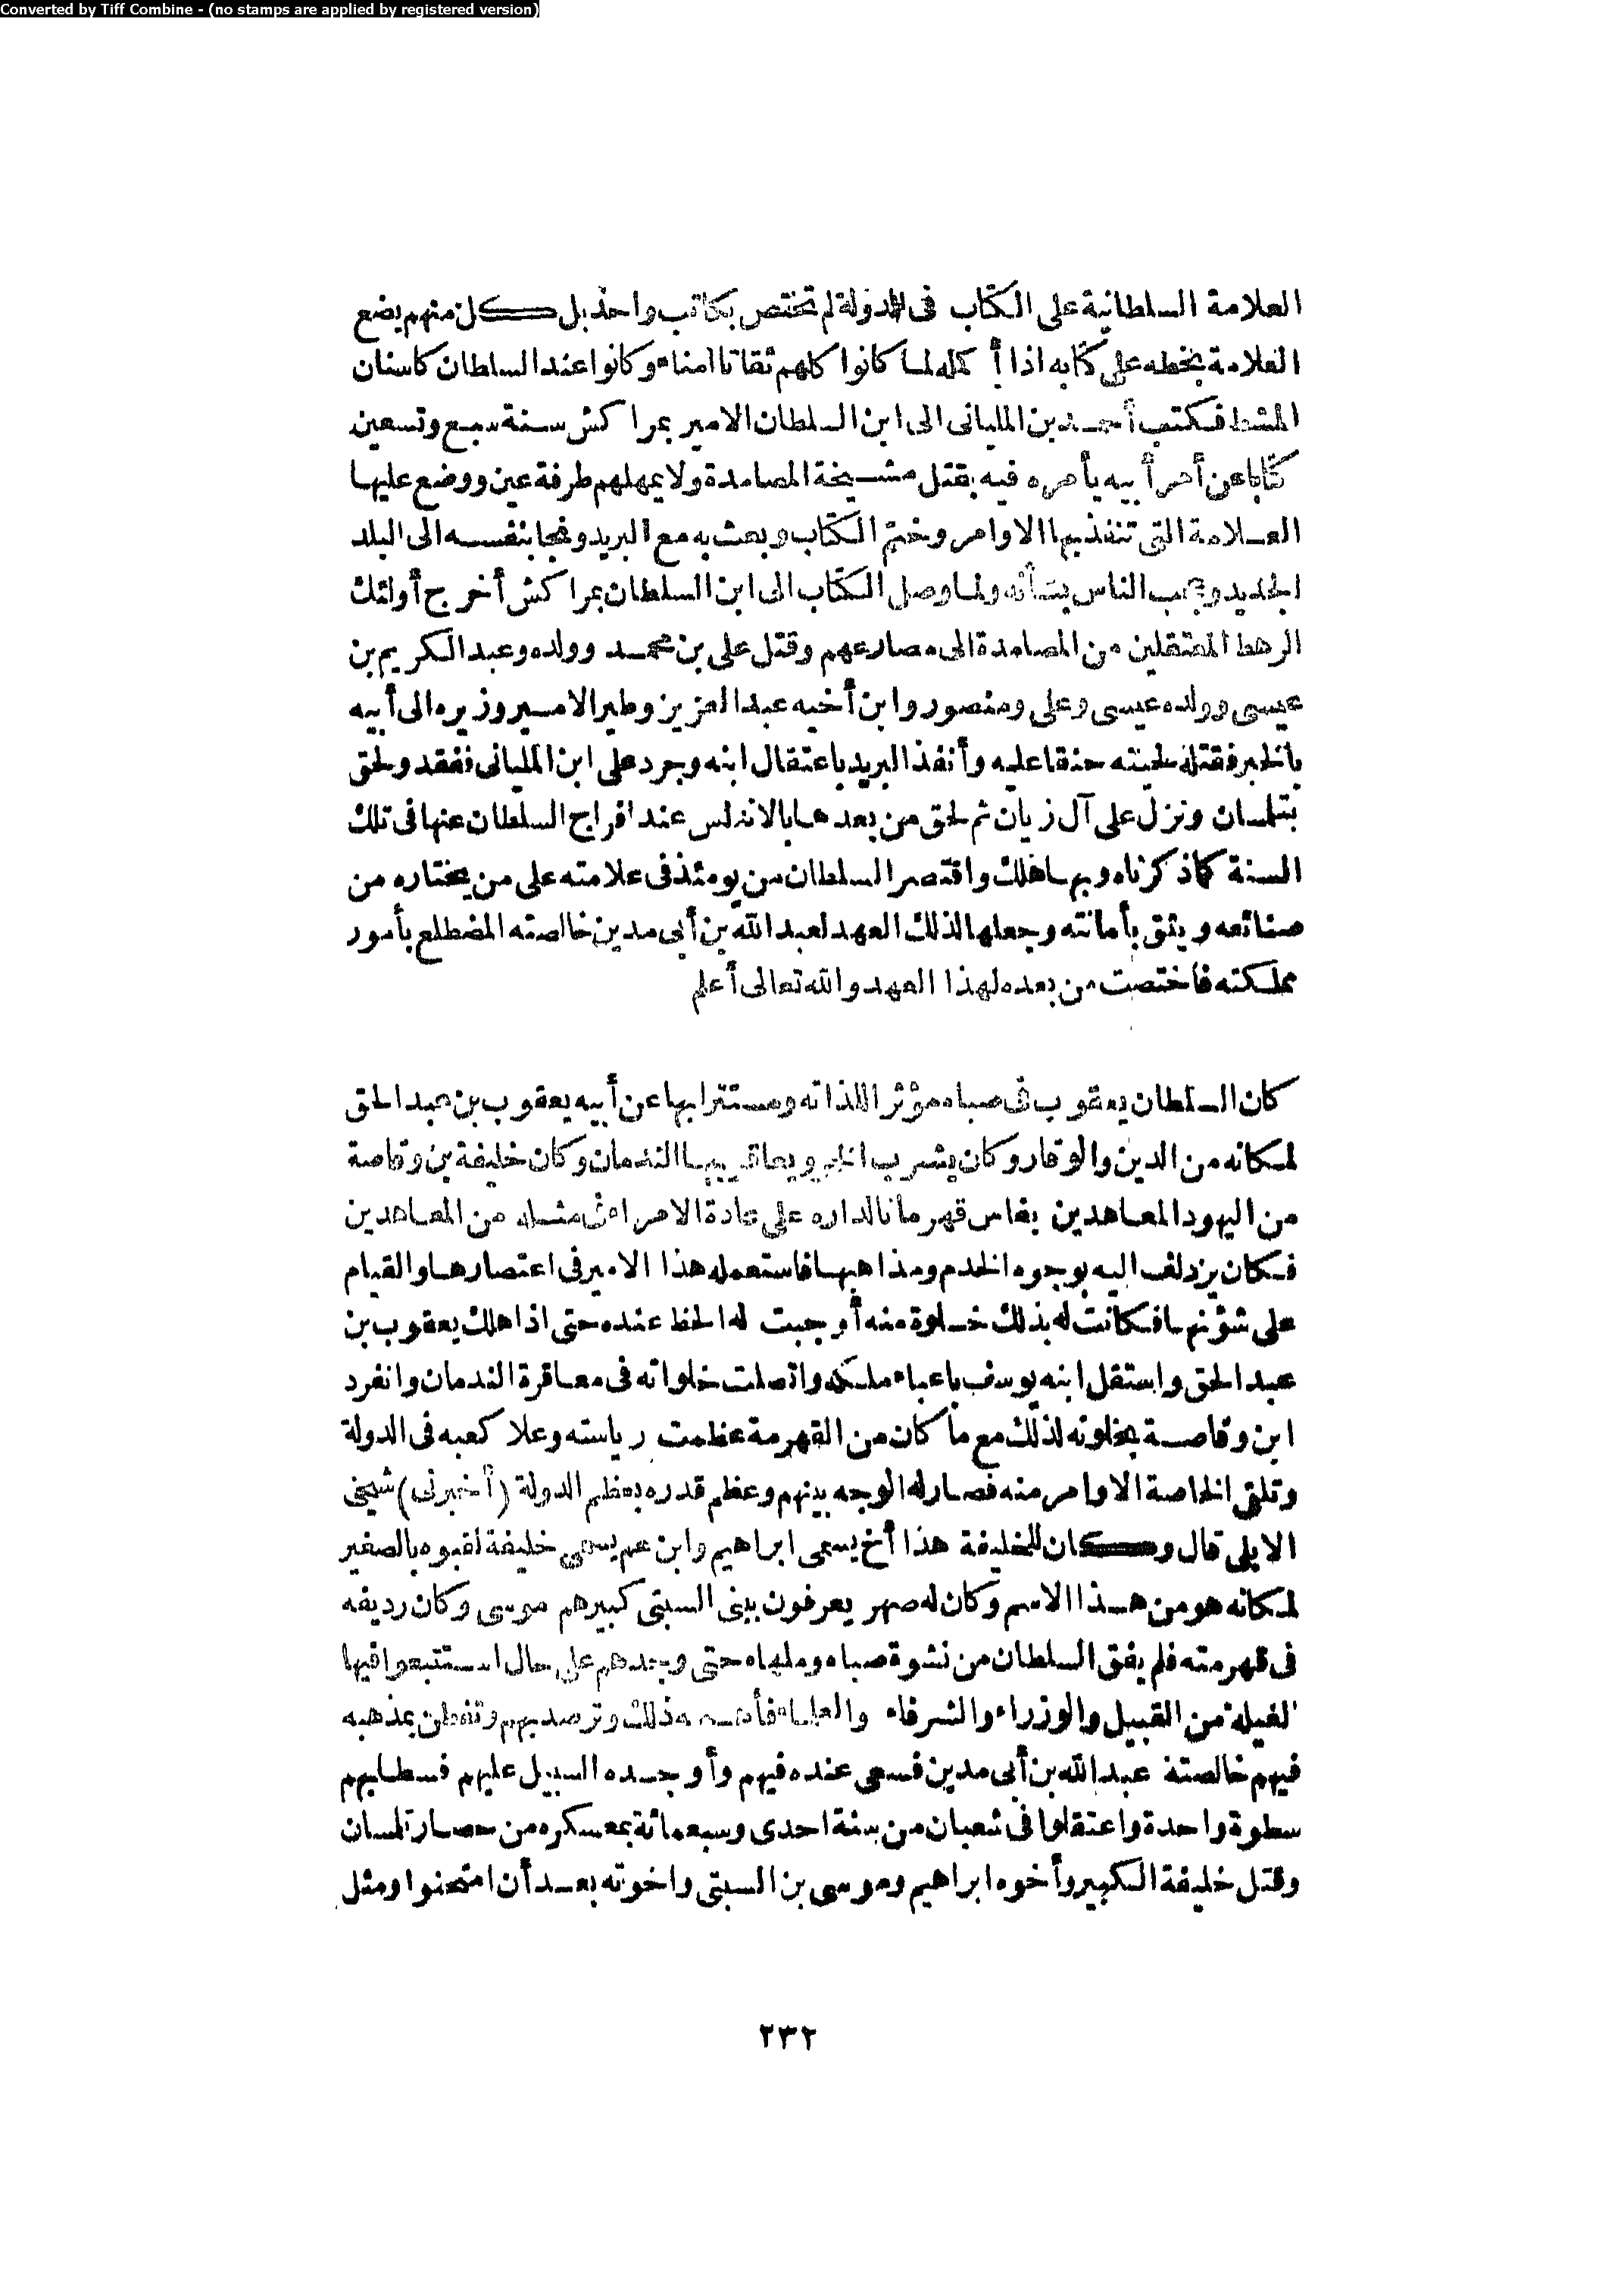 Converted by Tiff Combine - (no stamps are applied by registered version)
العلامة السلطانية على الكتاب فى الدولة لم تختص بكاتب واحد بل كل منهم يضع
العلامة بخطه على كتابه اذا أكمله لما كانوا كلهم ثقاتا امناء وكانوا عند السلطان كاسنان
المشط فكتب أحمد بن الملياني الى ابن السلطان الامير بمراكش سنة سبع وتسعين
كتابا عن أمر أبيه يأمره فيه بقتل مشيخة المصامدة ولا يمهلهم طرفة عين ووضع عليها
العلامة التى تنفذ بها الاوامر وختم الكتاب وبعث به مع البريد ونجا بنفسه الى البلد
الجديد وعجب الناس بشأنه ولما وصل الكتاب الى ابن السلطان بمراكش أخرج أولئك
الرهط المعتقلين من المصامدة الى مصارعهم وقتل على بن محمد وولده وعبد الكريم بن
عيسى وولده عيسى وعلى ومنصور وابن أخيه عبد العزيز وطير الامير وزيره الى أبيه
بالخبر فقتله لحينته حنقا عليه وأنفذ البريد باعتقال ابنه وجرد على ابن الملياني ففقد ولحق
بتلمسان ونزل على آل زيان ثم لحق من بعدها بالاندلس عند افراج السلطان عنها فى تلك
السنة كما ذكرناه وبها هلك واقتصر السلطان من يومئذ فى علامته على من يختاره من
صنائعه ويثق بأمانته وجعلها لذلك العهد لعبد الله بن أبى مدين خالصته المضطلع بأمور
مملكته فاختصت من بعده لهذا العهد والله تعالى أعلم
كان السلطان يعقوب فى صباه مؤثرا للذاته ومستترا بها عن أبيه يعقوب بن عبد الحق
لمكانه من الدين والوقار وكان يشرب الخمر ويعاقر بها الندمان وكان خليفة بن وقاصة
من اليهود المعاهدين بفاس قهرمانا لداره على عادة الامراء فى مثله من المعاهدين
فكان يزدلف اليه بوجوه الخدم ومذاهبها فاستعمله هذا الامير فى اعتصارها والقيام
على شؤنها فكانت له بذلك خلوة منه أوجبت له الحظ عنده حتى اذا هلك يعقوب بن
عبد الحق واستقل ابنه يوسف باعباء ملكه واتصلت خلواته فى معاقرة الندمان وانفرد
ابن وقاصة بخلوته لذلك مع ما كان من القهرمة عظمت رياسته وعلا كعبه فى الدولة
وتلقى الخاصة الاوامر منه فصار له الوجه بينهم وعظم قدره بعظم الدولة (أخبرنى) شيخى
الابلى قال وكان لخليفة هذا أخ يسمى ابراهيم وابن عم يسمى خليفة لقبوه بالصغير
لمكانه هو من هذا الاسم وكان له صهر يعرفون ببنى السبتى كبيرهم موسى وكان رديفه
فى قهرمته فلم يفق السلطان من نشوة صباه وملهاه حتى وجدهم على حال استتبعوا فيها
العيلة من القبيل والوزراء والشرفاء والعلماء فأهمه ذلك وترصد بهم وتفطن بمذهبه
فيهم خالصتة عبد الله بن أبى مدين فسعى عنده فيهم وأوجده السبيل عليهم فسطا بهم
سطوة واحدة واعتقلوا فى شعبان من سنة احدى وسبعمائة بمعسكره من حصار تلمسان
وقتل خليفة الكبير وأخوه ابراهيم وموسى بن السبتى واخوته بعد أن امتحنوا ومثل
٢٣٢